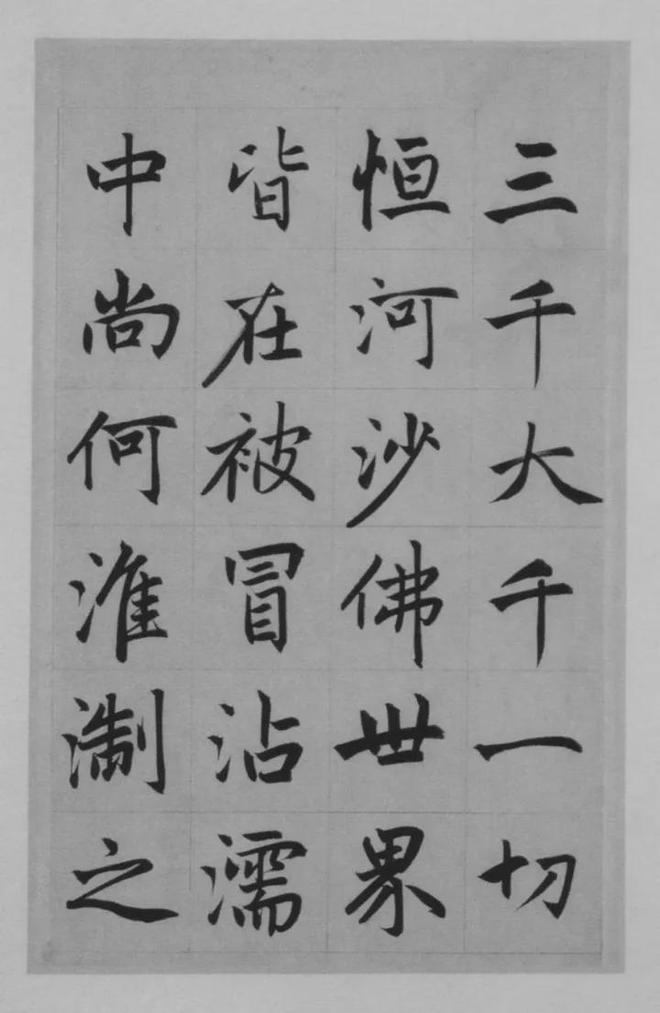 三千大千一切
恒河沙佛世界
皆在被冒沾濡
中尚何淮淛之